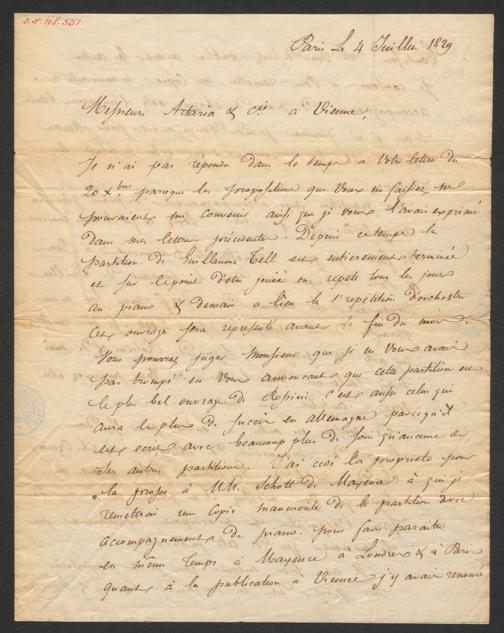 J.N. 118.551
Paris Le 4 Juillet 1829
Messieurs Artaria & Cie à Vienne,
Je n'ai pas répondu dans le temps à Votre lettre du
20 Xbre parceque les proposition que Vous m'y faisiez ne
pouvaient me convenir ainsi que je vous l'avais exprimé
dans mes lettres précédentes. Depuis ce temps la
partition de Guillaume Tell est entierement terminée
et sur le point d'etre jouée on repete tous les jours
au piano & demain a lieu la 1e repetition d'orchestre
cet ouvrage sera representé avant la fin du mois.
Vous pouvez juger Monsieur que je ne Vous avais
pas trompé en Vous annoncant que cette partition est
le plus bel ouvrage de Rossini c'est aussi celui qui
aura le plus de succès en allemagne parcequ'il
est ecrit avec beaucoup plus de soin qu'aucune de
ses autres partitions. J'ai cedé la propriété pour
la à MM. Schott de Mayence à qui je
remettrai une Copie manuscrite de la partition avec
accompagnement de piano pour faire paraitre
en même temps à Mayence à Londres & à Paris
quant à la publication à Vienne j'y avais renoncé